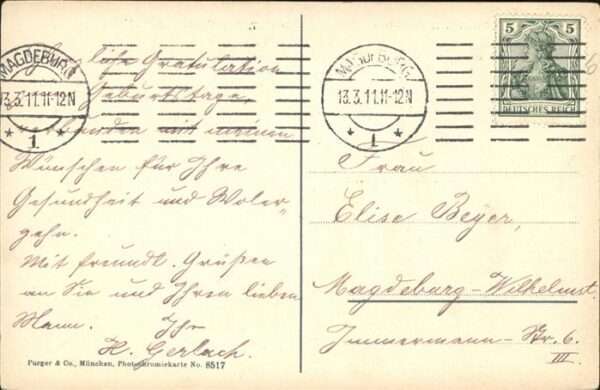 MAGDEBURG
13.3.11.11-12N
* 1 *
MAGDEBURG
13.3.11.11-12N
* 1 *
5 5
DEUTSCHES REICH
liche Gratulation
Geburtstage,
verbunden mit meinen
Wünschen für Ihre
Gesundheit und Woler-
gehn.
Mit freundl. Grüßen
an Sie und Ihren lieben
Mann. Ihr
H. Gerlach.
Purger & Co., München, Photochromiekarte No. 8517
Frau
Elise Beyer,
Magdeburg-Wilhelmst.
Immermann-Str. 6.
III.